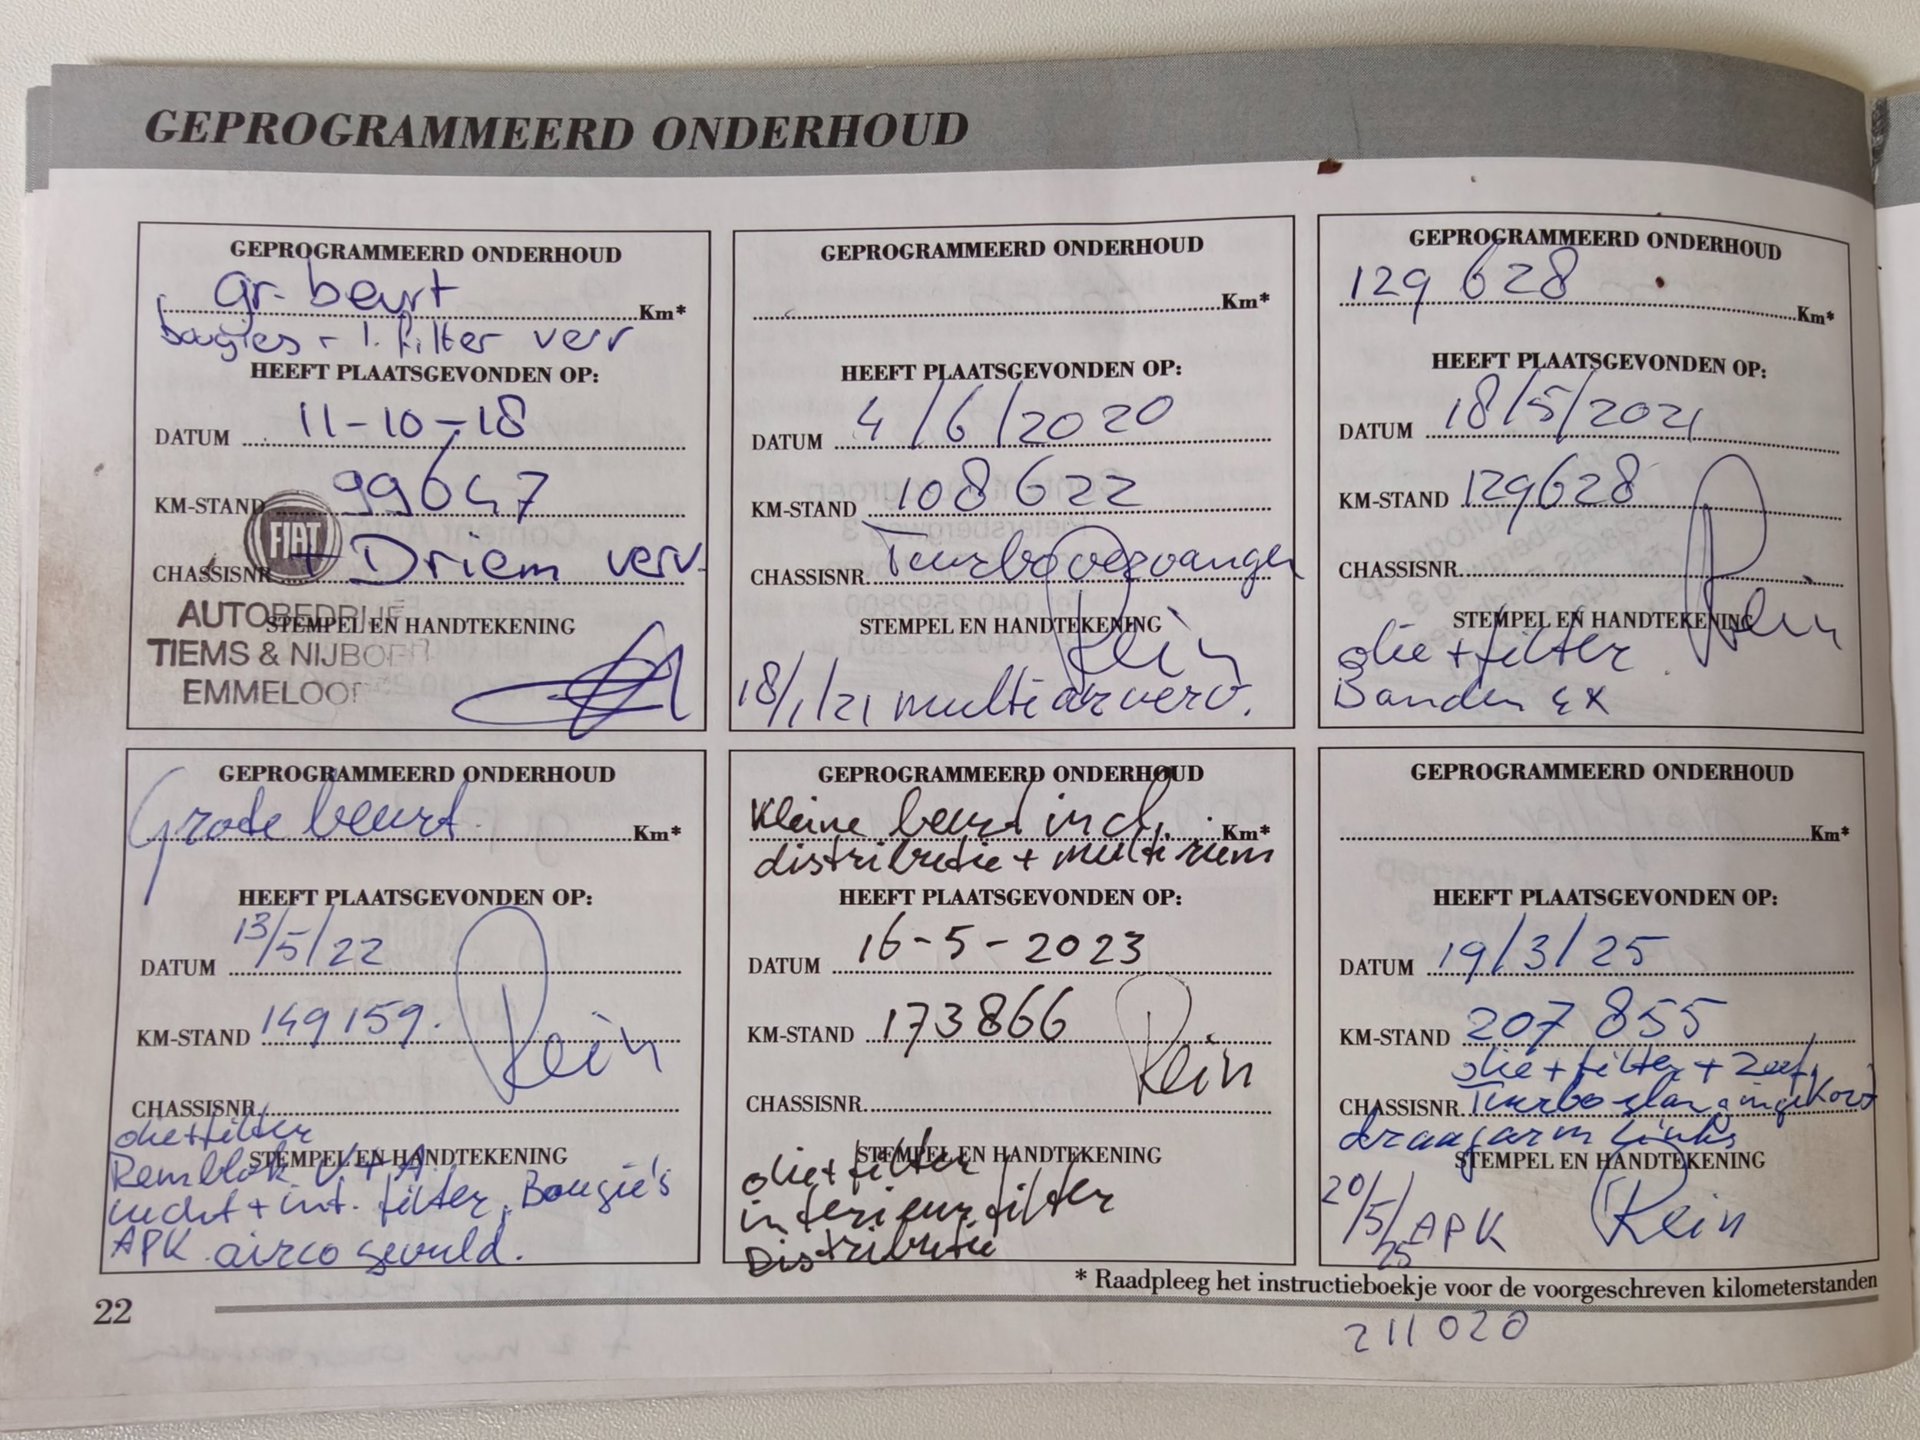 GEPROGRAMMEERD ONDERHOUD
GEPROGRAMMEERD ONDERHOUD
gr. beurt Km*
bougies - 1. filter verv
HEEFT PLAATSGEVONDEN OP:
DATUM 11-10-18
KM-STAND 99647
FIAT
CHASSISNR. + Driem verv.
AUTOBEDRIJF
STEMPEL EN HANDTEKENING
TIEMS & NIJBOER
EMMELOOR
GEPROGRAMMEERD ONDERHOUD
Km*
HEEFT PLAATSGEVONDEN OP:
DATUM 4/6/2020
KM-STAND 108622
CHASSISNR. Turbo vervangen
STEMPEL EN HANDTEKENING
Rein
18/1/21 multi verv.
GEPROGRAMMEERD ONDERHOUD
129 628 Km*
HEEFT PLAATSGEVONDEN OP:
DATUM 18/5/2021
KM-STAND 129628
CHASSISNR.
STEMPEL EN HANDTEKENING
Rein
olie + filter
Banden 4x
GEPROGRAMMEERD ONDERHOUD
Grote beurt. Km*
HEEFT PLAATSGEVONDEN OP:
DATUM 13/5/22
KM-STAND 149159.
Rein
CHASSISNR.
olie + filter
STEMPEL EN HANDTEKENING
Remblok V + A
lucht + int. filter, Bougie's
APK airco gevuld.
GEPROGRAMMEERD ONDERHOUD
Kleine beurt incl. Km*
distributie + multi riem
HEEFT PLAATSGEVONDEN OP:
DATUM 16-5-2023
KM-STAND 173866
Rein
CHASSISNR.
STEMPEL EN HANDTEKENING
olie + filter
interieur filter
Distributie
GEPROGRAMMEERD ONDERHOUD
Km*
HEEFT PLAATSGEVONDEN OP:
DATUM 19/3/25
KM-STAND 207 855
olie + filter + zeef,
CHASSISNR. Turbo slang ingekort
draagarm links
STEMPEL EN HANDTEKENING
20/5/25 APK Rein
* Raadpleeg het instructieboekje voor de voorgeschreven kilometerstanden
22
211020